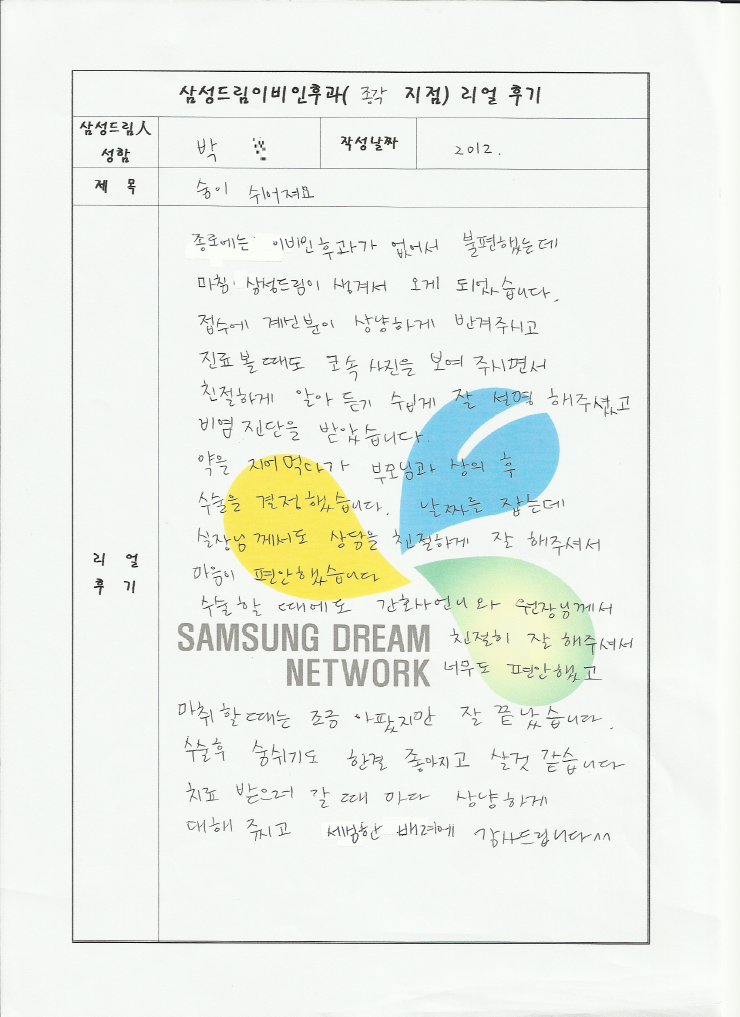 삼성드림이비인후과( 종각 지점) 리얼 후기
삼성드림人
성함
박
작성날짜
2012.
제 목
숨이 쉬어져요
리 얼
후 기
종로에는 이비인후과가 없어서 불편했는데
마침 삼성드림이 생겨서 오게 되었습니다.
접수에 계신분이 상냥하게 반겨주시고
진료볼때도 코속 사진을 보여 주시면서
친절하게 알아 듣기 쉽게 잘 설명 해주셨고
비염 진단을 받았습니다.
약을 지어먹다가 부모님과 상의 후
수술을 결정했습니다. 날짜를 잡는데
실장님 께서도 상담을 친절하게 잘 해주셔서
마음이 편안했습니다
수술할 때에도 간호사언니와 원장님께서
친절히 잘 해주셔서
너무도 편안했고
SAMSUNG DREAM
NETWORK
마취할때는 조금 아팠지만 잘 끝났습니다.
수술후 숨쉬기도 한결 좋아지고 살것 같습니다
치료 받으러 갈 때 마다 상냥하게
대해 주시고 세심한 배려에 감사드립니다^^